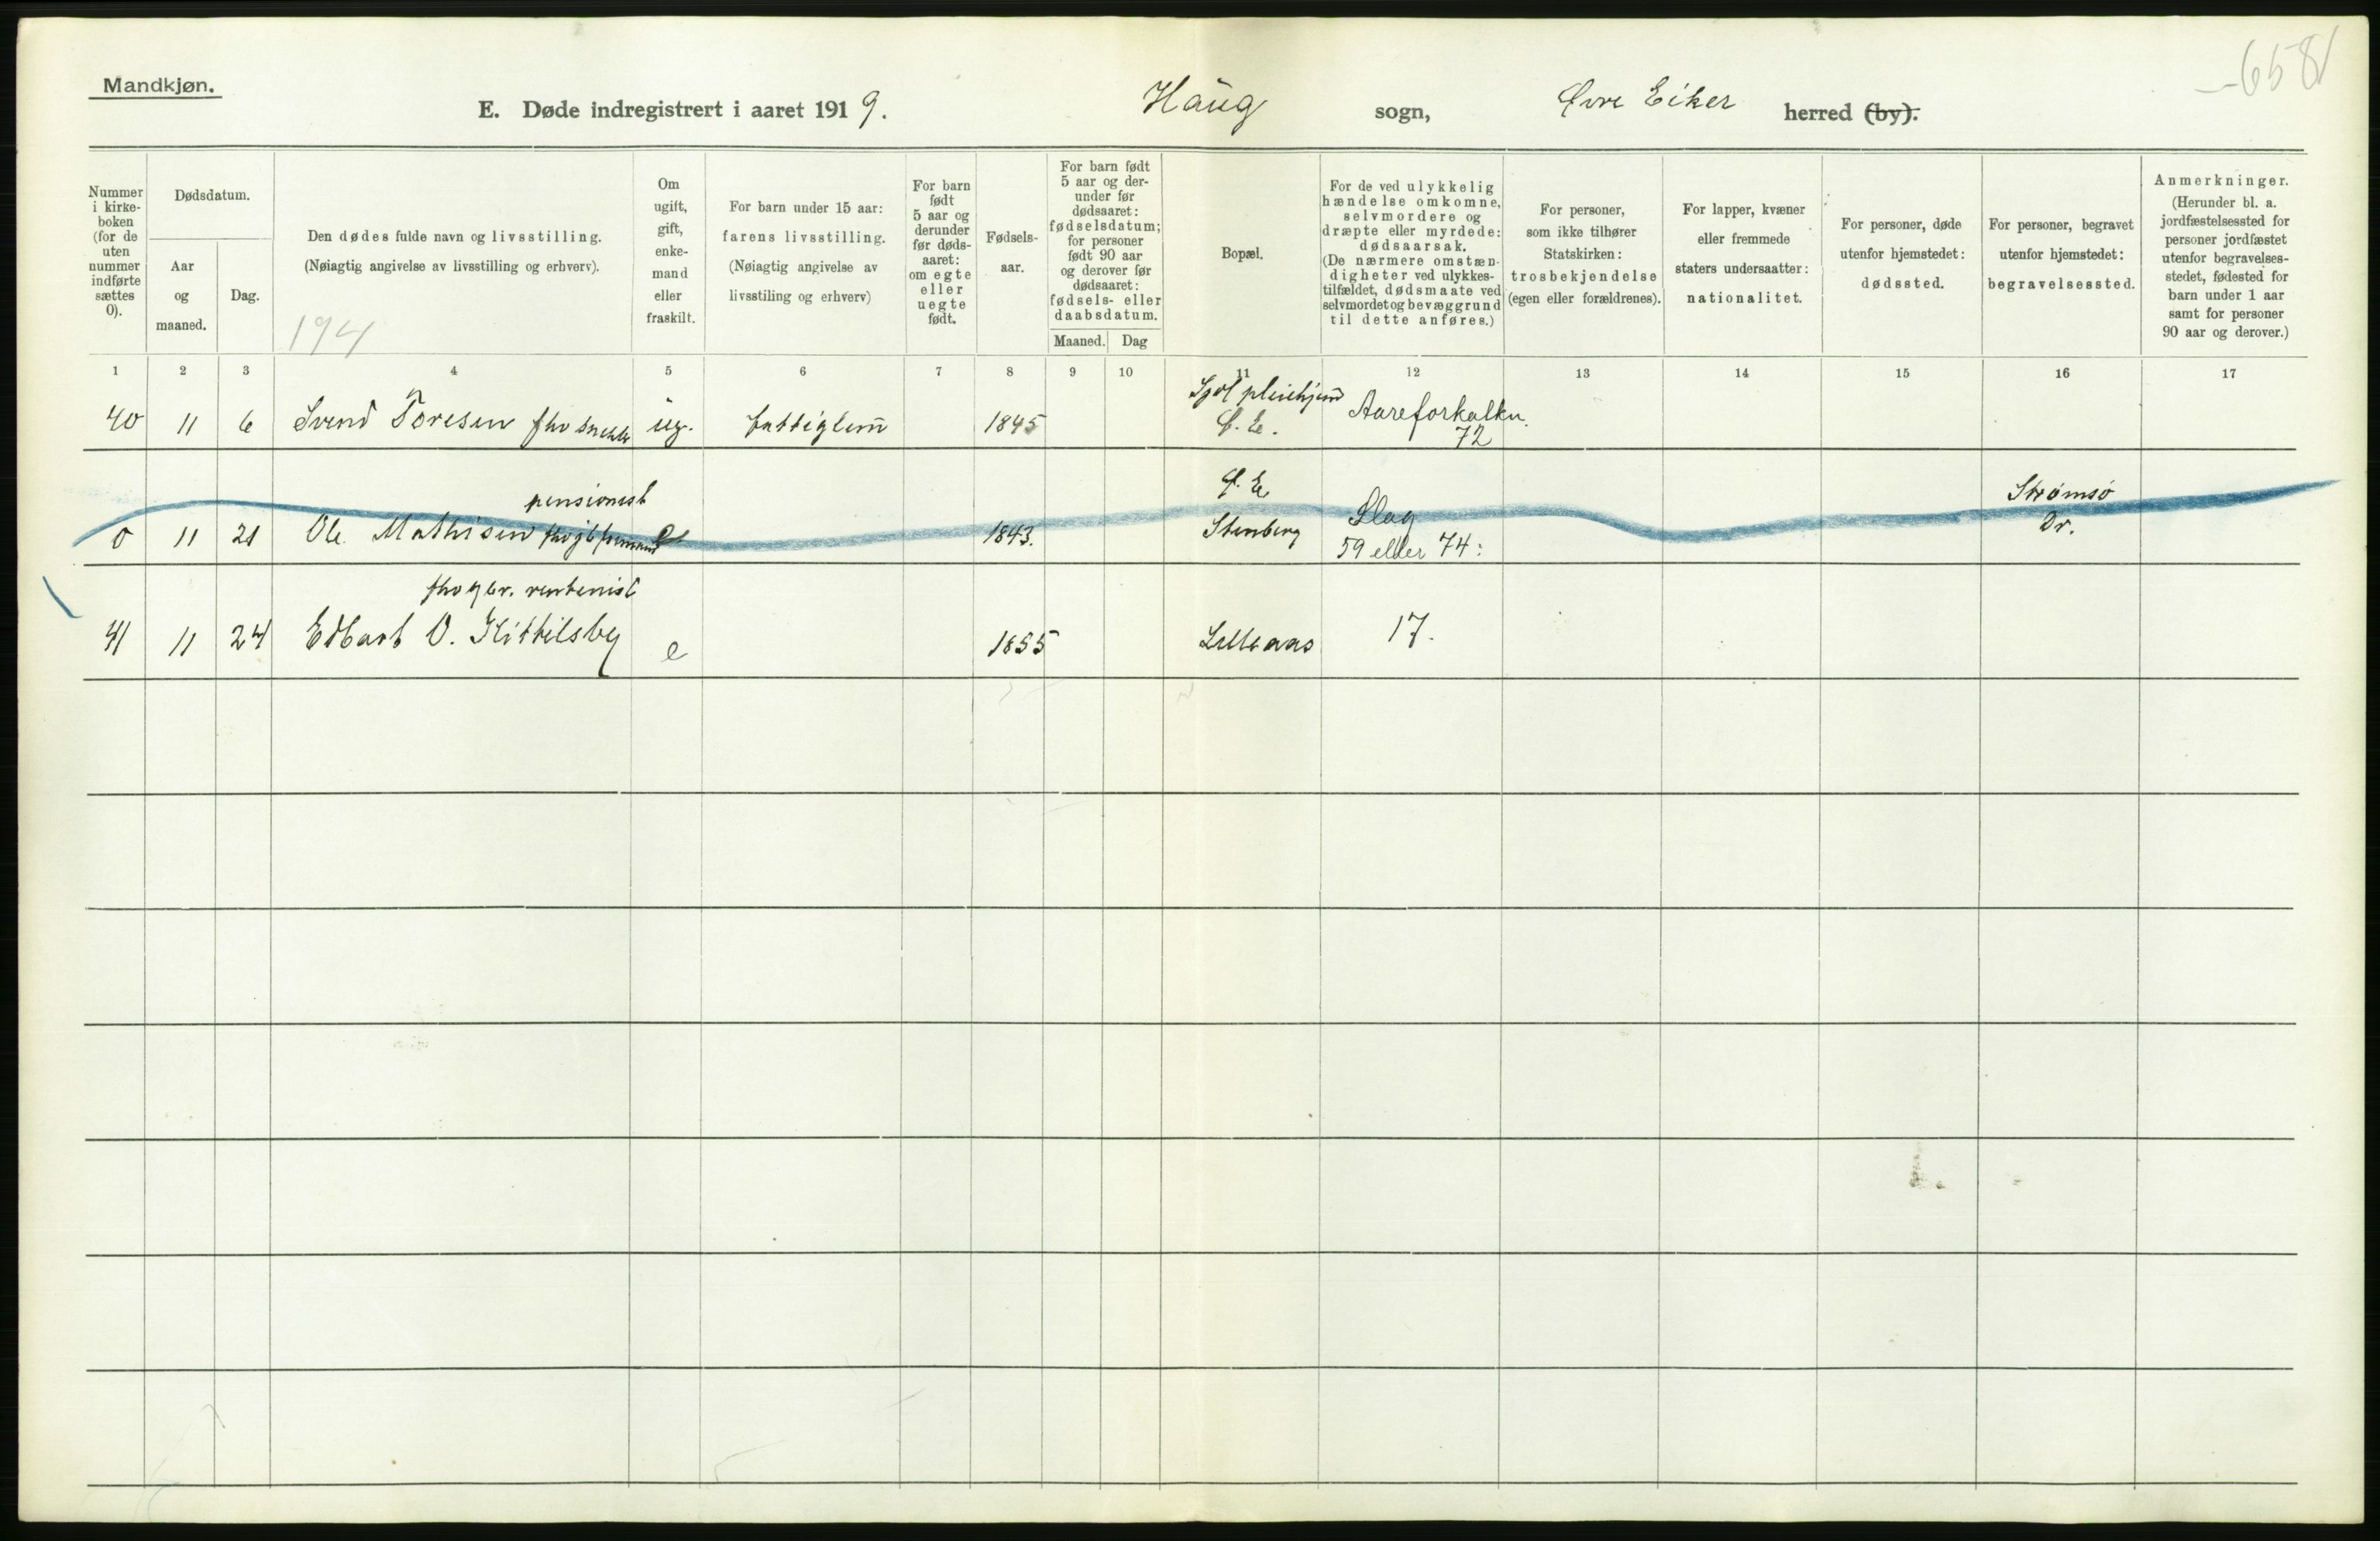 -6581
Mandkjøn.
E. Døde indregistrert i aaret 1919. Haug sogn, Øvre Eiker herred (by).
Nummer i kirke-boken (for de uten nummer indførte sættes 0).
Dødsdatum.
Aar og maaned.
Dag.
Den dødes fulde navn og livsstilling.
(Nøiagtig angivelse av livsstilling og erhverv).
194
Om ugift, gift, enke-mand eller fraskilt.
For barn under 15 aar:
farens livsstilling.
(Nøiagtig angivelse av
livsstiling og erhverv)
For barn født 5 aar og derunder før døds-aaret: om egte eller uegte født.
Fødsels-aar.
For barn født 5 aar og der-under før dødsaaret: fødselsdatum; for personer født 90 aar og derover før dødsaaret: fødsels- eller daabsdatum.
Maaned. Dag
Bopæl.
For de ved ulykkelig hændelse omkomne, selvmordere og dræpte eller myrdede: dødsaarsak.
(De nærmere omstæn-digheter ved ulykkes-tilfældet, dødsmaate ved selvmordet og bevæggrund til dette anføres.)
For personer, som ikke tilhører Statskirken: trosbekjendelse (egen eller forældrenes).
For lapper, kvæner eller fremmede staters undersaatter: nationalitet.
For personer, døde utenfor hjemstedet: dødssted.
For personer, begravet utenfor hjemstedet: begravelsessted.
Anmerkninger.
(Herunder bl. a. jordfæstelsessted for personer jordfæstet utenfor begravelses-stedet, fødested for barn under 1 aar samt for personer 90 aar og derover.)
1 2 3 4 5 6 7 8 9 10 11 12 13 14 15 16 17
40 11 6 Svend Toresen fhv snekker ug. fattiglem 1845 pleiehjem Ø. E. Aareforkalkn. 72
pensionist Ø. E Strømsø
0 11 21 Ole Mathisen e 1843. Stenberg Slag 59 eller 74: Dr.
fhv gbr. rentenist
41 11 24 Edbart O. Kittilsby e 1855 Lilleaas 17.